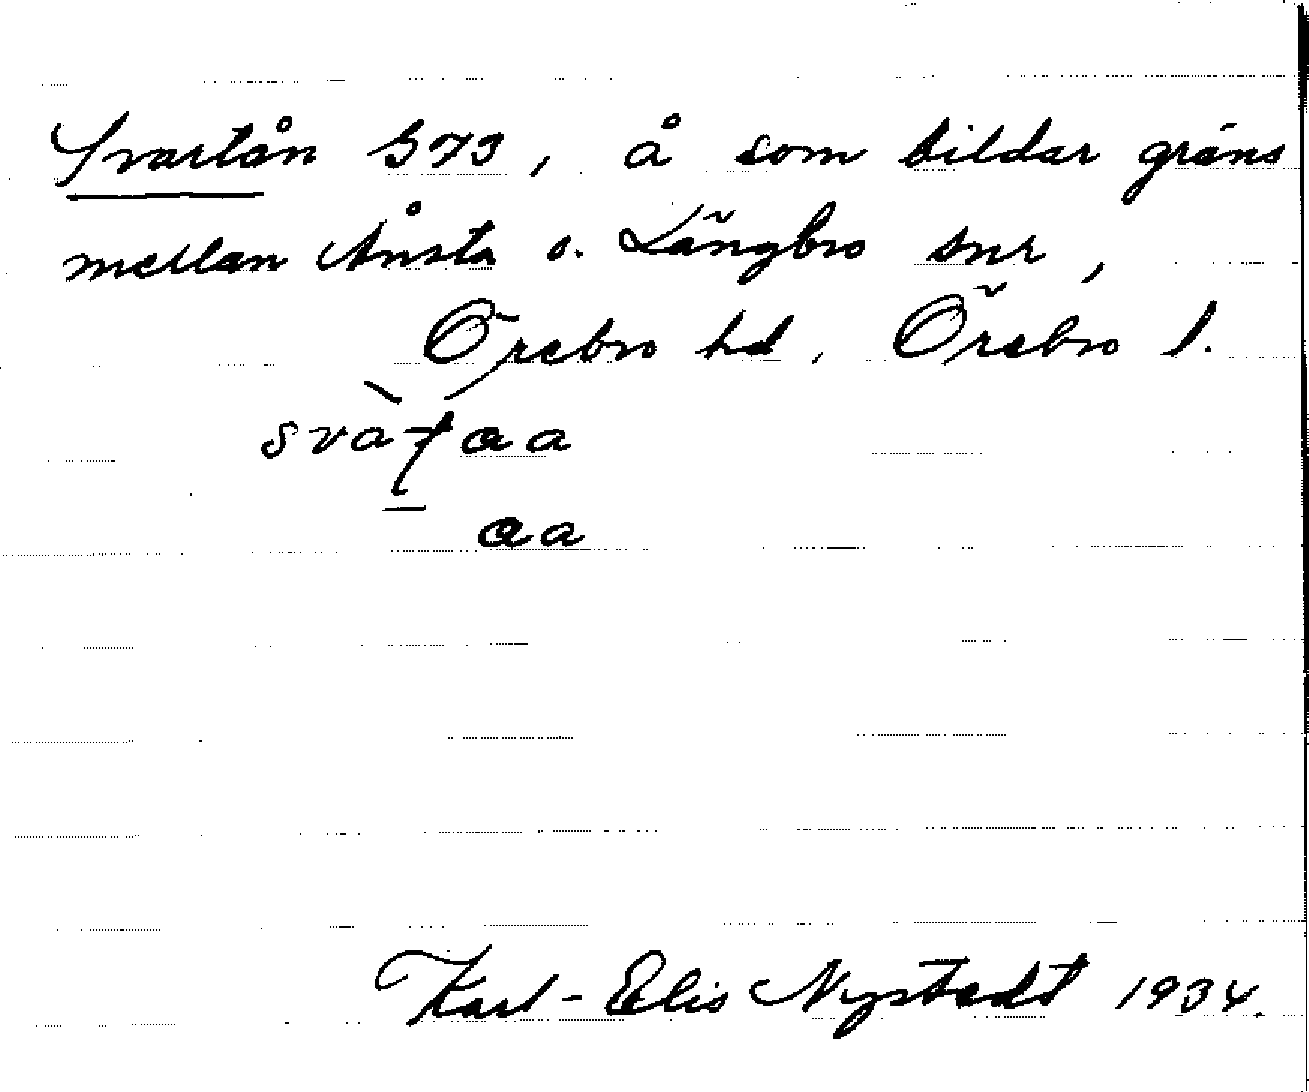 Svartån 573, å som bildar gräns
mellan Ånsta o. Längbro snr,
Örebro hd. Örebro l.
aa
Karl-Elis Nystedt 1934.